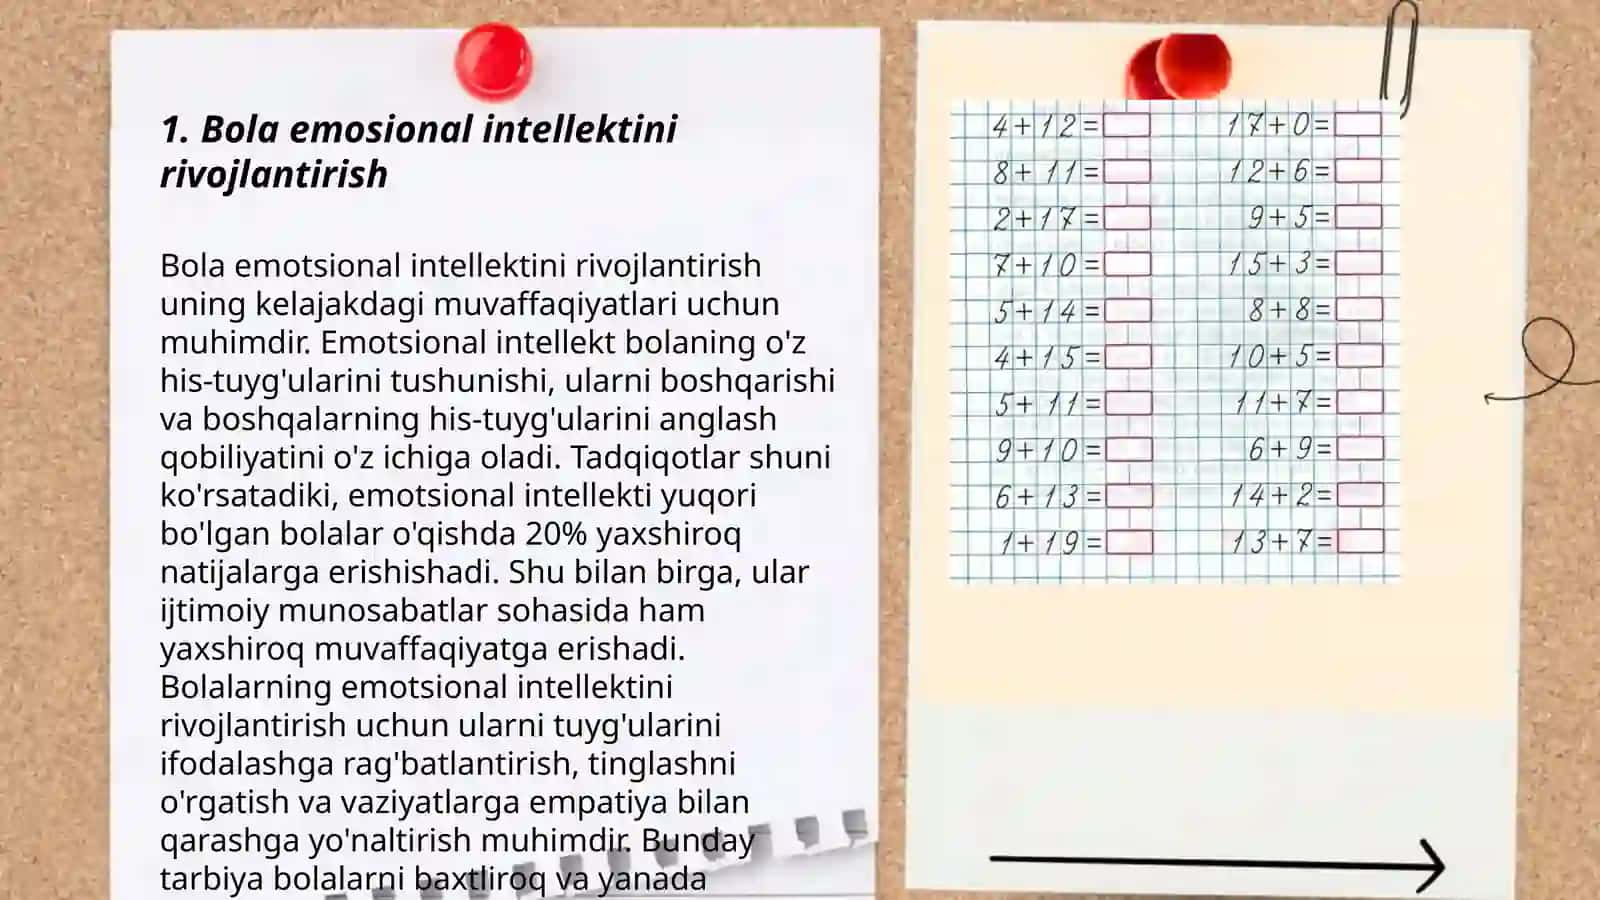 1. Bola emosional intellektini
rivojlantirish
Bola emotsional intellektini rivojlantirish
uning kelajakdagi muvaffaqiyatlari uchun
muhimdir. Emotsional intellekt bolaning o'z
his-tuyg'ularini tushunishi, ularni boshqarishi
va boshqalarning his-tuyg'ularini anglash
qobiliyatini o'z ichiga oladi. Tadqiqotlar shuni
ko'rsatadiki, emotsional intellekti yuqori
bo'lgan bolalar o'qishda 20% yaxshiroq
natijalarga erishishadi. Shu bilan birga, ular
ijtimoiy munosabatlar sohasida ham
yaxshiroq muvaffaqiyatga erishadi.
Bolalarning emotsional intellektini
rivojlantirish uchun ularni tuyg'ularini
ifodalashga rag'batlantirish, tinglashni
o'rgatish va vaziyatlarga empatiya bilan
qarashga yo'naltirish muhimdir. Bunday
tarbiya bolalarni baxtliroq va yanada
4+12=
8+11=
2+17=
7+10=
5+14=
4+15=
5+11=
9+10=
6+13=
1+19=
17+0=
12+6=
9+5=
15+3=
8+8=
10+5=
11+7=
6+9=
14+2=
13+7=